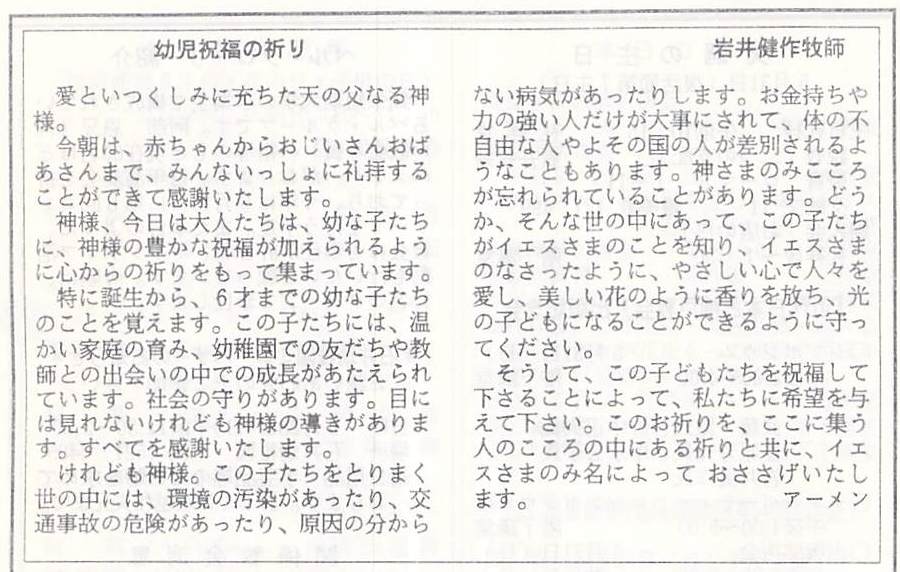 幼児祝福の祈り
岩井健作牧師
愛といつくしみに充ちた天の父なる神
様。
今朝は、赤ちゃんからおじいさんおば
あさんまで、みんないっしょに礼拝する
ことができて感謝いたします。
神様、今日は大人たちは、幼な子たち
に、神様の豊かな祝福が加えられるよう
に心からの祈りをもって集まっています。
特に誕生から、6才までの幼な子たち
のことを覚えます。この子たちには、温
かい家庭の育み、幼稚園での友だちや教
師との出会いの中での成長があたえられ
ています。社会の守りがあります。目に
は見れないけれども神様の導きがありま
す。すべてを感謝いたします。
けれども神様。この子たちをとりまく
世の中には、環境の汚染があったり、交
通事故の危険があったり、原因の分から
ない病気があったりします。お金持ちや
力の強い人だけが大事にされて、体の不
自由な人やよその国の人が差別されるよ
うなこともあります。神さまのみこころ
が忘れられていることがあります。どう
か、そんな世の中にあって、この子たち
がイエスさまのことを知り、イエスさま
のなさったように、やさしい心で人々を
愛し、美しい花のように香りを放ち、光
の子どもになることができるように守っ
てください。
そうして、この子どもたちを祝福して
下さることによって、私たちに希望を与
えて下さい。このお祈りを、ここに集う
人のこころの中にある祈りと共に、イエ
スさまのみ名によって おささげいたし
ます。 アーメン